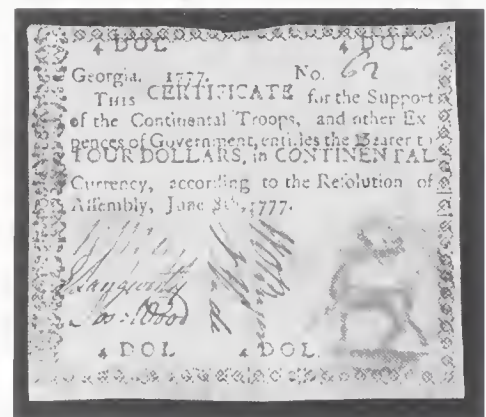 4 DOL 4 DOL
Georgia, 1777. No. 62
THIS CERTIFICATE for the Support
of the Continental Troops, and other Ex
pences of Government, entitles the Bearer to
FOUR DOLLARS, in CONTINENTAL
Currency, according to the Resolution of
Assembly, June 8th, 1777.
Langworthy
Jos. Wood
4 DOL. 4 DOL.